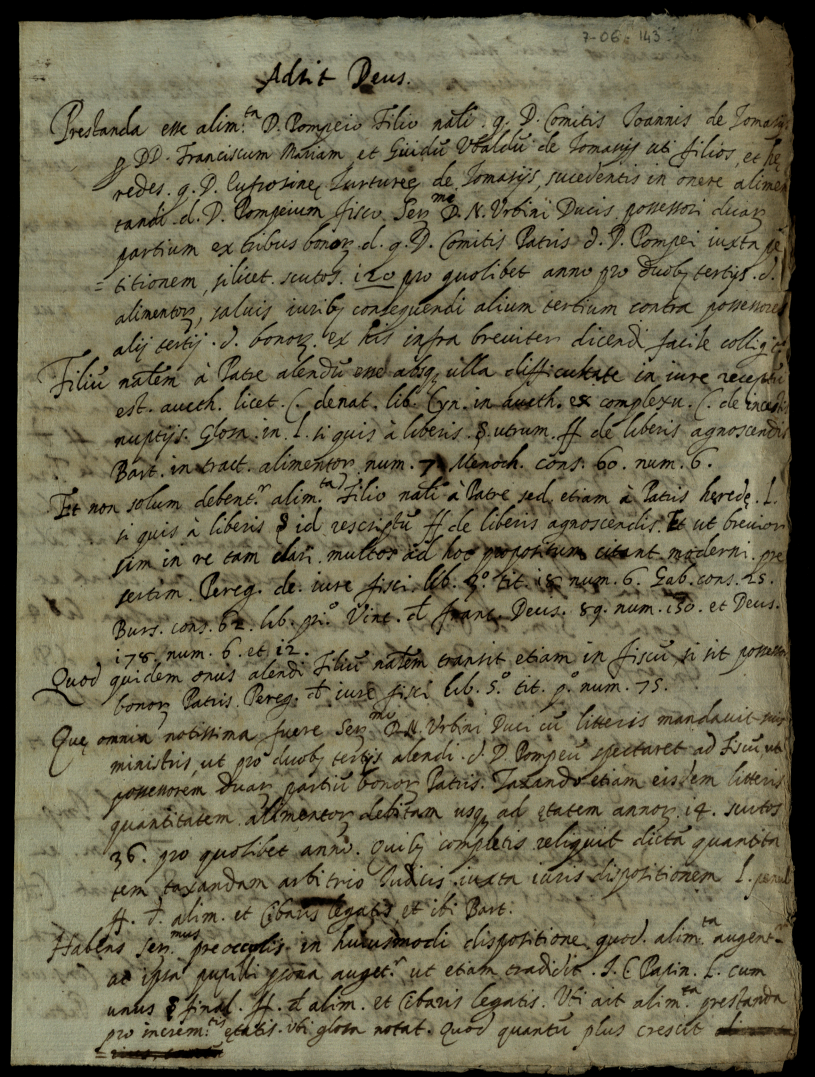 7-06. 143
Adsit Deus.
Prestanda esse alim.ta D. Pompeio Filio nāli q. D. Comitis Joannis de Tomasijs
p DD. Franciscum Mariam, et Guidū Vbaldū de Tomasijs uti filios, et hę
redes. q. D. Eufrosinę Turtureę de Tomasijs, sucedentis in onere alimen
tandi d. D. Pompeium fisco Ser.me D. N. Vrbini Ducis possessori duarȝ
partium ex tribus bonorȝ d. q. D. Comitis Patris d. D. Pompei iuxta pe
= titionem, silicet. scutos. 120 pro quolibet anno pro duobȝ tertijs. d.
alimentorȝ, saluis iuribȝ consequendi alium tertium contra possessores
alij tertij. d. bonorȝ. ex his infra breviter dicendi facile colligit.r
Filiū nālem à Patre alendū esse absqȝ ulla difficultate in iure receptū
est. aucth. licet. C. de nat. lib. Cyn. in aucth. ex complexu. C. de incestis
nuptijs. Glosa. in. l. si quis à liberis. §. utrum. ff. de liberis agnoscendis
Bart. in tract. alimentorȝ num. 7. Menoch. cons. 60. num. 6.
Et non solum debent.r alim.ta Filio nāli à Patre sed etiam à Patris heredę. l.
si quis à liberis § id rescriptū ff de liberis agnoscendis. Et ut brevior
sim in re tam clari multos ad hoc propositum citant moderni. pre
sertim. Pereg. de. iure fisci. lib. 3.o tit. 18. num. 6. Gab. cons. 25.
Burs. cons. 62. lib. pr.o Vinc. d̄ franc. Decis. 89. num. 150. et Decis.
178. num. 6. et 12.
Quod quidem onus alendi Filiū nālem transit etiam in fiscū si sit possessor
bonorȝ Patris. Pereg. d̄ iure fisci lib. 5.o tit. p.o num. 75.
Quę omnia notissima fuere Ser.mo D. N. Vrbini Duci cū litteris mandavit suis
ministris, ut pro duobȝ tertijs alendi. d. D. Pompeū spectaret ad Fiscū ut
possessorem duarȝ partiū bonorȝ Patris. Taxando etiam eisdem litteris
quantitatem alimentorȝ debitam usqȝ ad ętatem annorȝ. 14. scutos
36. pro quolibet anno. quibȝ completis reliquit dictā quantita
tem taxandam arbitrio Judicis iuxta iuris dispositionem l. penul
ff. d̄. alim. et Cibaris legatis et ibi Bart.
Habens Ser.mus preocculis in huiusmodi dispositione quod. alim.ta augent.r
ut etiam tradidit. J. C Papin. l. cum
unus § final. ff. d̄ alim. et Cibaris legatis. Vti ait alim.ta prestanda
pro increm.to ętatis. vti glosa notat. Quod quantū plus crescit